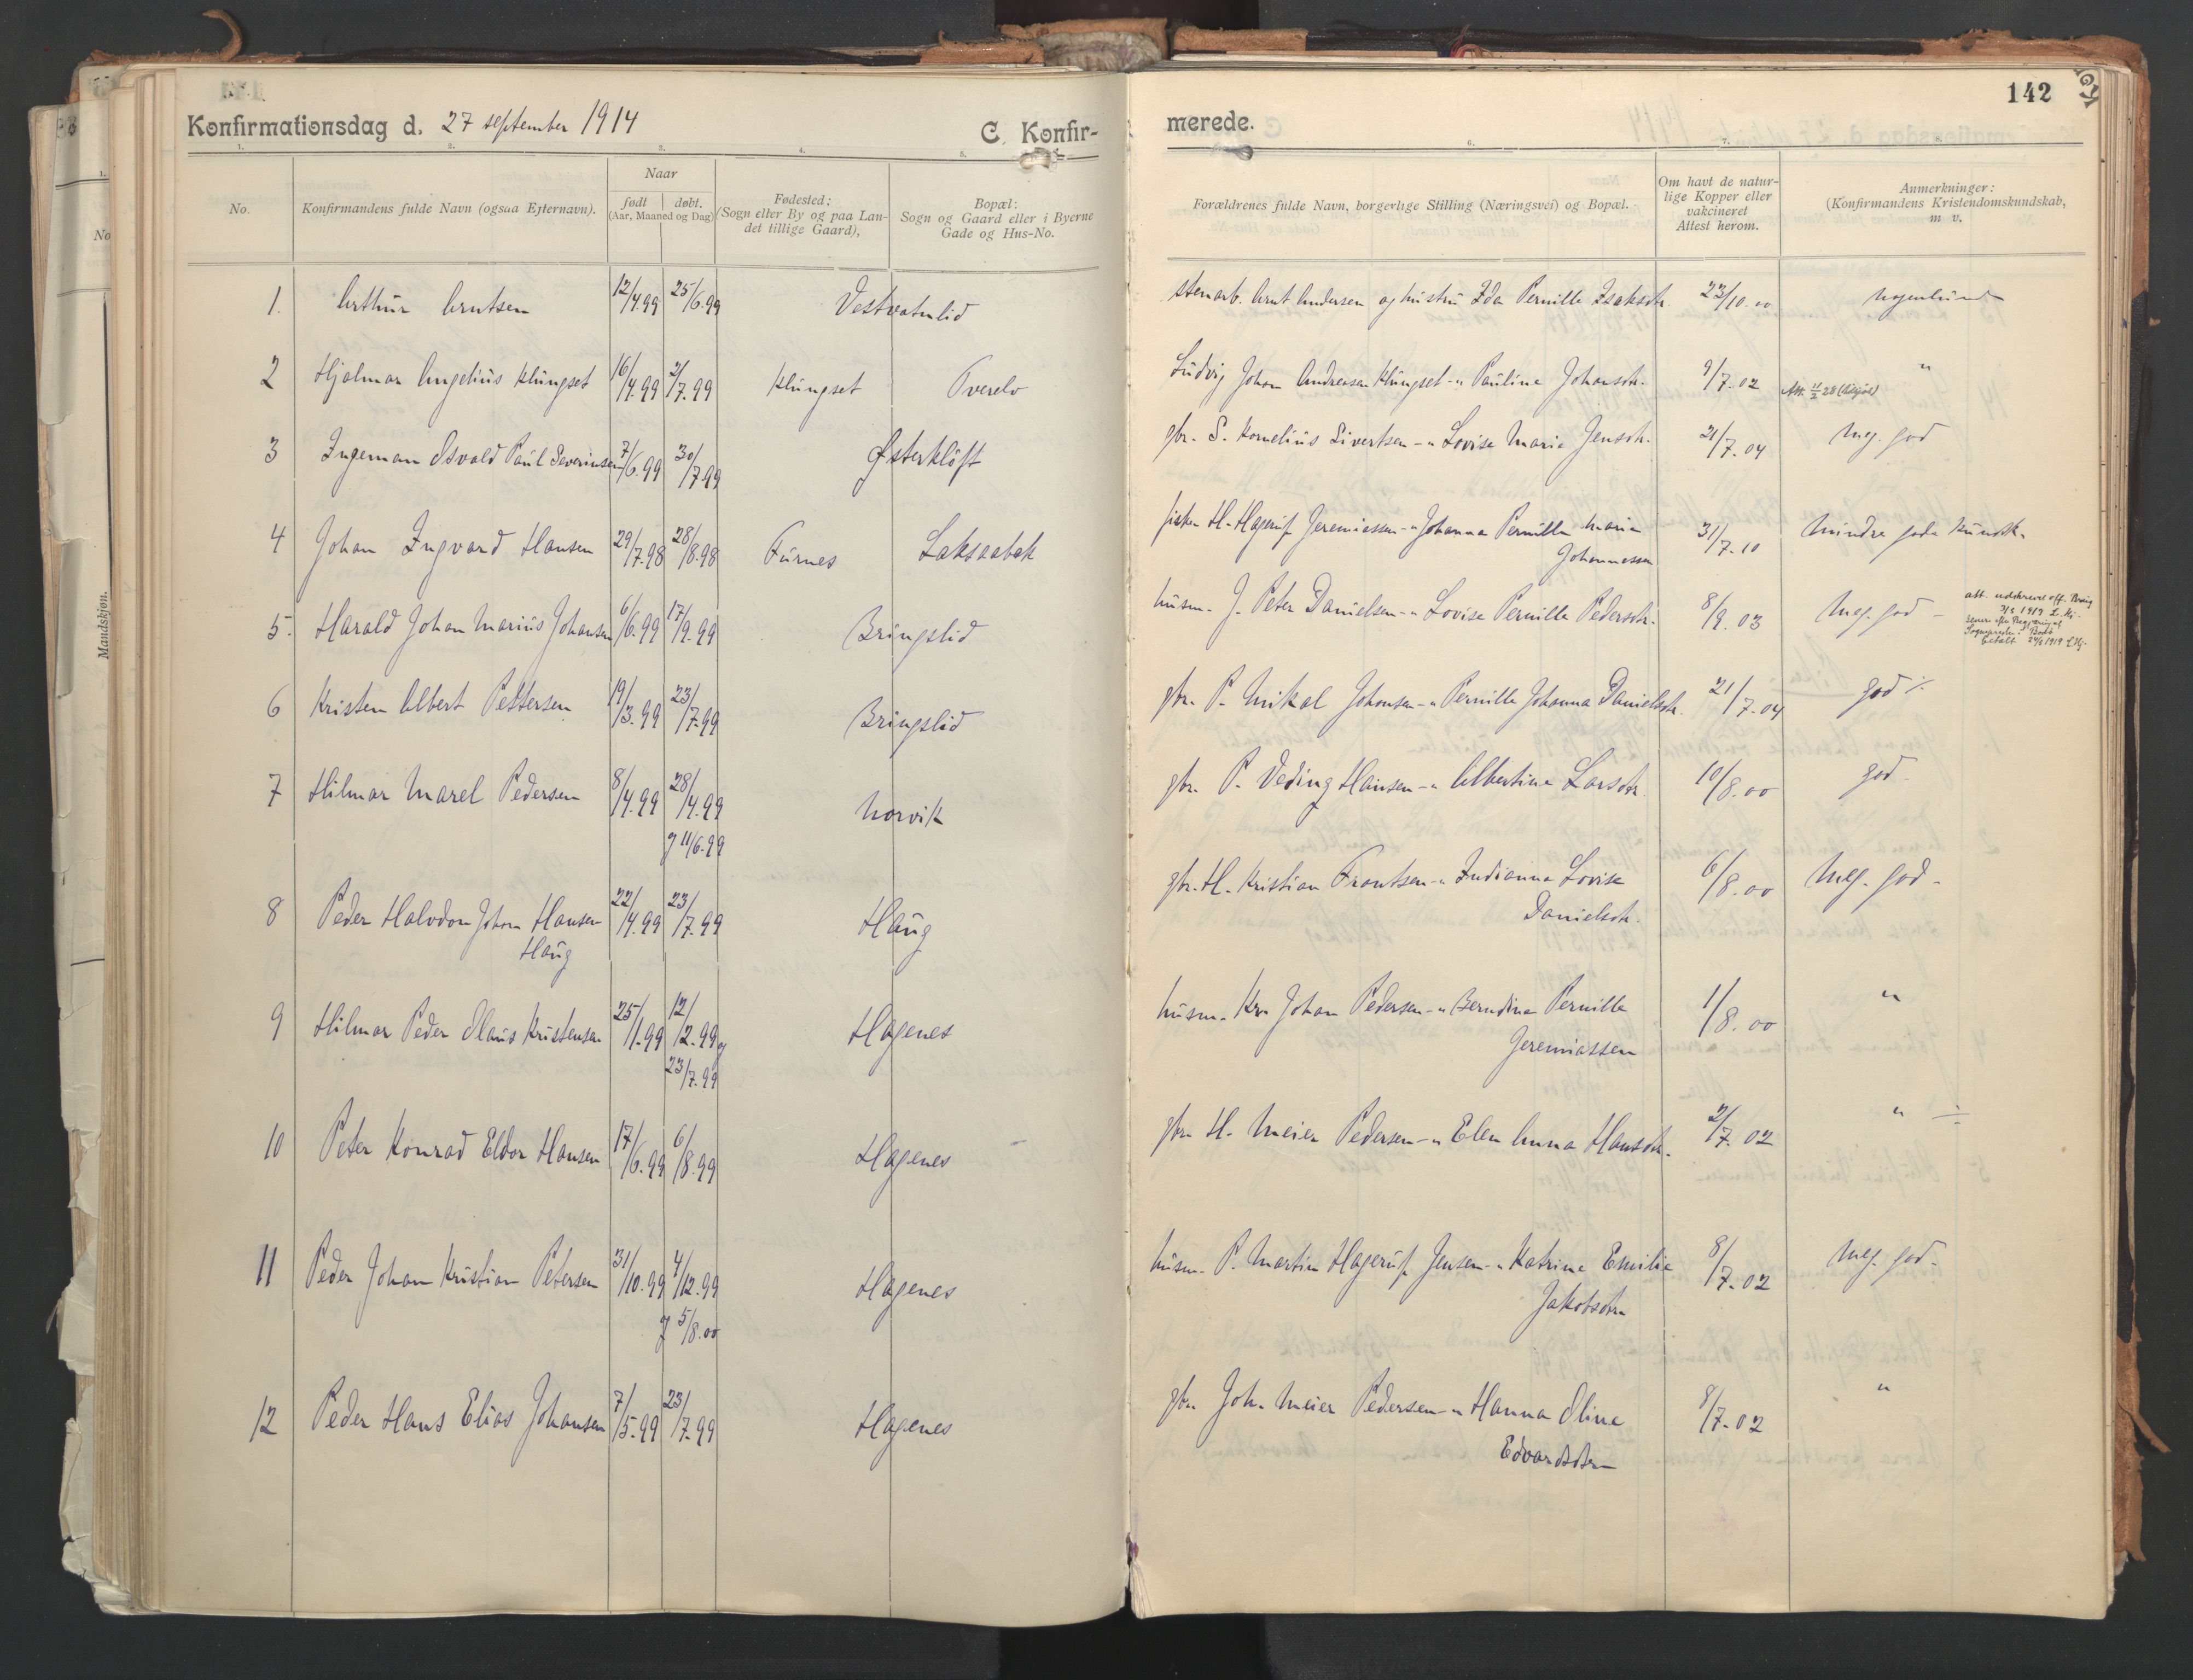 142
Konfirmationsdag d. 27 september 1914
C. Konfir-
merede.
1. 2. 3. 4. 5. 6. 7.
No.
Konfirmandens fulde Navn (ogsaa Efternavn).
Naar
født døbt.
(Aar, Maaned og Dag)
Fødested:
(Sogn eller By og paa Lan-
det tillige Gaard),
Bopæl:
Sogn og Gaard eller i Byerne
Gade og Hus-No.
Forældrenes fulde Navn, borgerlige Stilling (Næringsvei) og Bopæl.
Om havt de natur-
lige Kopper eller
vakcineret
Attest herom.
Anmerkninger:
(Konfirmandens Kristendomskundskab,
m v.
No
Mandskjøn.
1. Arthur Arntsen 12/4.99 25/6.99 Vestvatnlid
stenarb. Arnt Andersen og hustru Ida Pernille Isaksdtr. 23/10.00
2 Hjalmar Angelius Klungset 16/4.99 2/7.99 Klungset Tverelv
Ludvig Johan Andreasen Klungset - " Pauline Johansdtr. 9/7.02 "
Att. 11/2 28
3 Ingeman Osvald Paul Severinsen 7/6.99 30/7.99 Østerkløft
gbr. S. Kornelius Sivertsen - " Lovise Marie Jensdtr. 21/7.04 Meg. god
4 Johan Ingvard Hansen 29/7.98 28/8.98 Furnes Laksaabak
fisker H. Hagerup Jeremiassen - " Johanna Pernille Maria
Johannessen 31/7.10 Mindre gode kundsk.
5. Harald Johan Marius Johansen 6/6.99 17/9.99 Bringslid
husm. J. Peter Danielsen - " Lovise Pernille Pedersdtr. 8/9.03 Meg. god -
att. udskrevet off. Brug
3/3 1919
betalt 1919
6 Kristen Albert Pettersen 19/3.99 23/7.99 Bringslid
gbr. P. Mikal Johansen - " Pernille Johanna Danielsdtr. 21/7.04 god ./.
7 Hilmar Marel Pedersen 8/4.99 28/4.99 Norvik
J 11/6.99
gbr. P. Veding Hansen - " Albertine Larsdtr. 10/8.00 god.
8 Peder Halvdan Johan Hansen 22/4.99 23/7.99 Haug
Haug
gbr. H. Kristian Frantsen - " Indianna Lovise
Danielsdtr. 6/8.00 Meg. god -
9 Hilmar Peder Olaus Kristensen 25/1.99 12/2.99 og Hagenes
23/7.99
husm. Kr. Johan Pedersen - " Berndine Pernille
Jeremiassen 1/8.00 "
10 Peter Konrad Eldor Hansen 17/6.99 6/8.99 Hagenes
gbr. H. Meier Pedersen - " Elen Anna Hansdtr. 2/7.02 " ÷
11 Peder Johan Kristian Petersen 31/10.99 4/12.99 Hagenes
J 5/8.00
husm. P. Martin Hagerup Jensen - " Katrine Emilie
Jakobsdtr. 8/7.02 Meg. god -
12 Peder Hans Elias Johansen 7/5.99 23/7.99 Hagenes
gbr. Joh. Meier Pedersen - " Hanna Oline
Edvardsdtr. 8/7.02 "